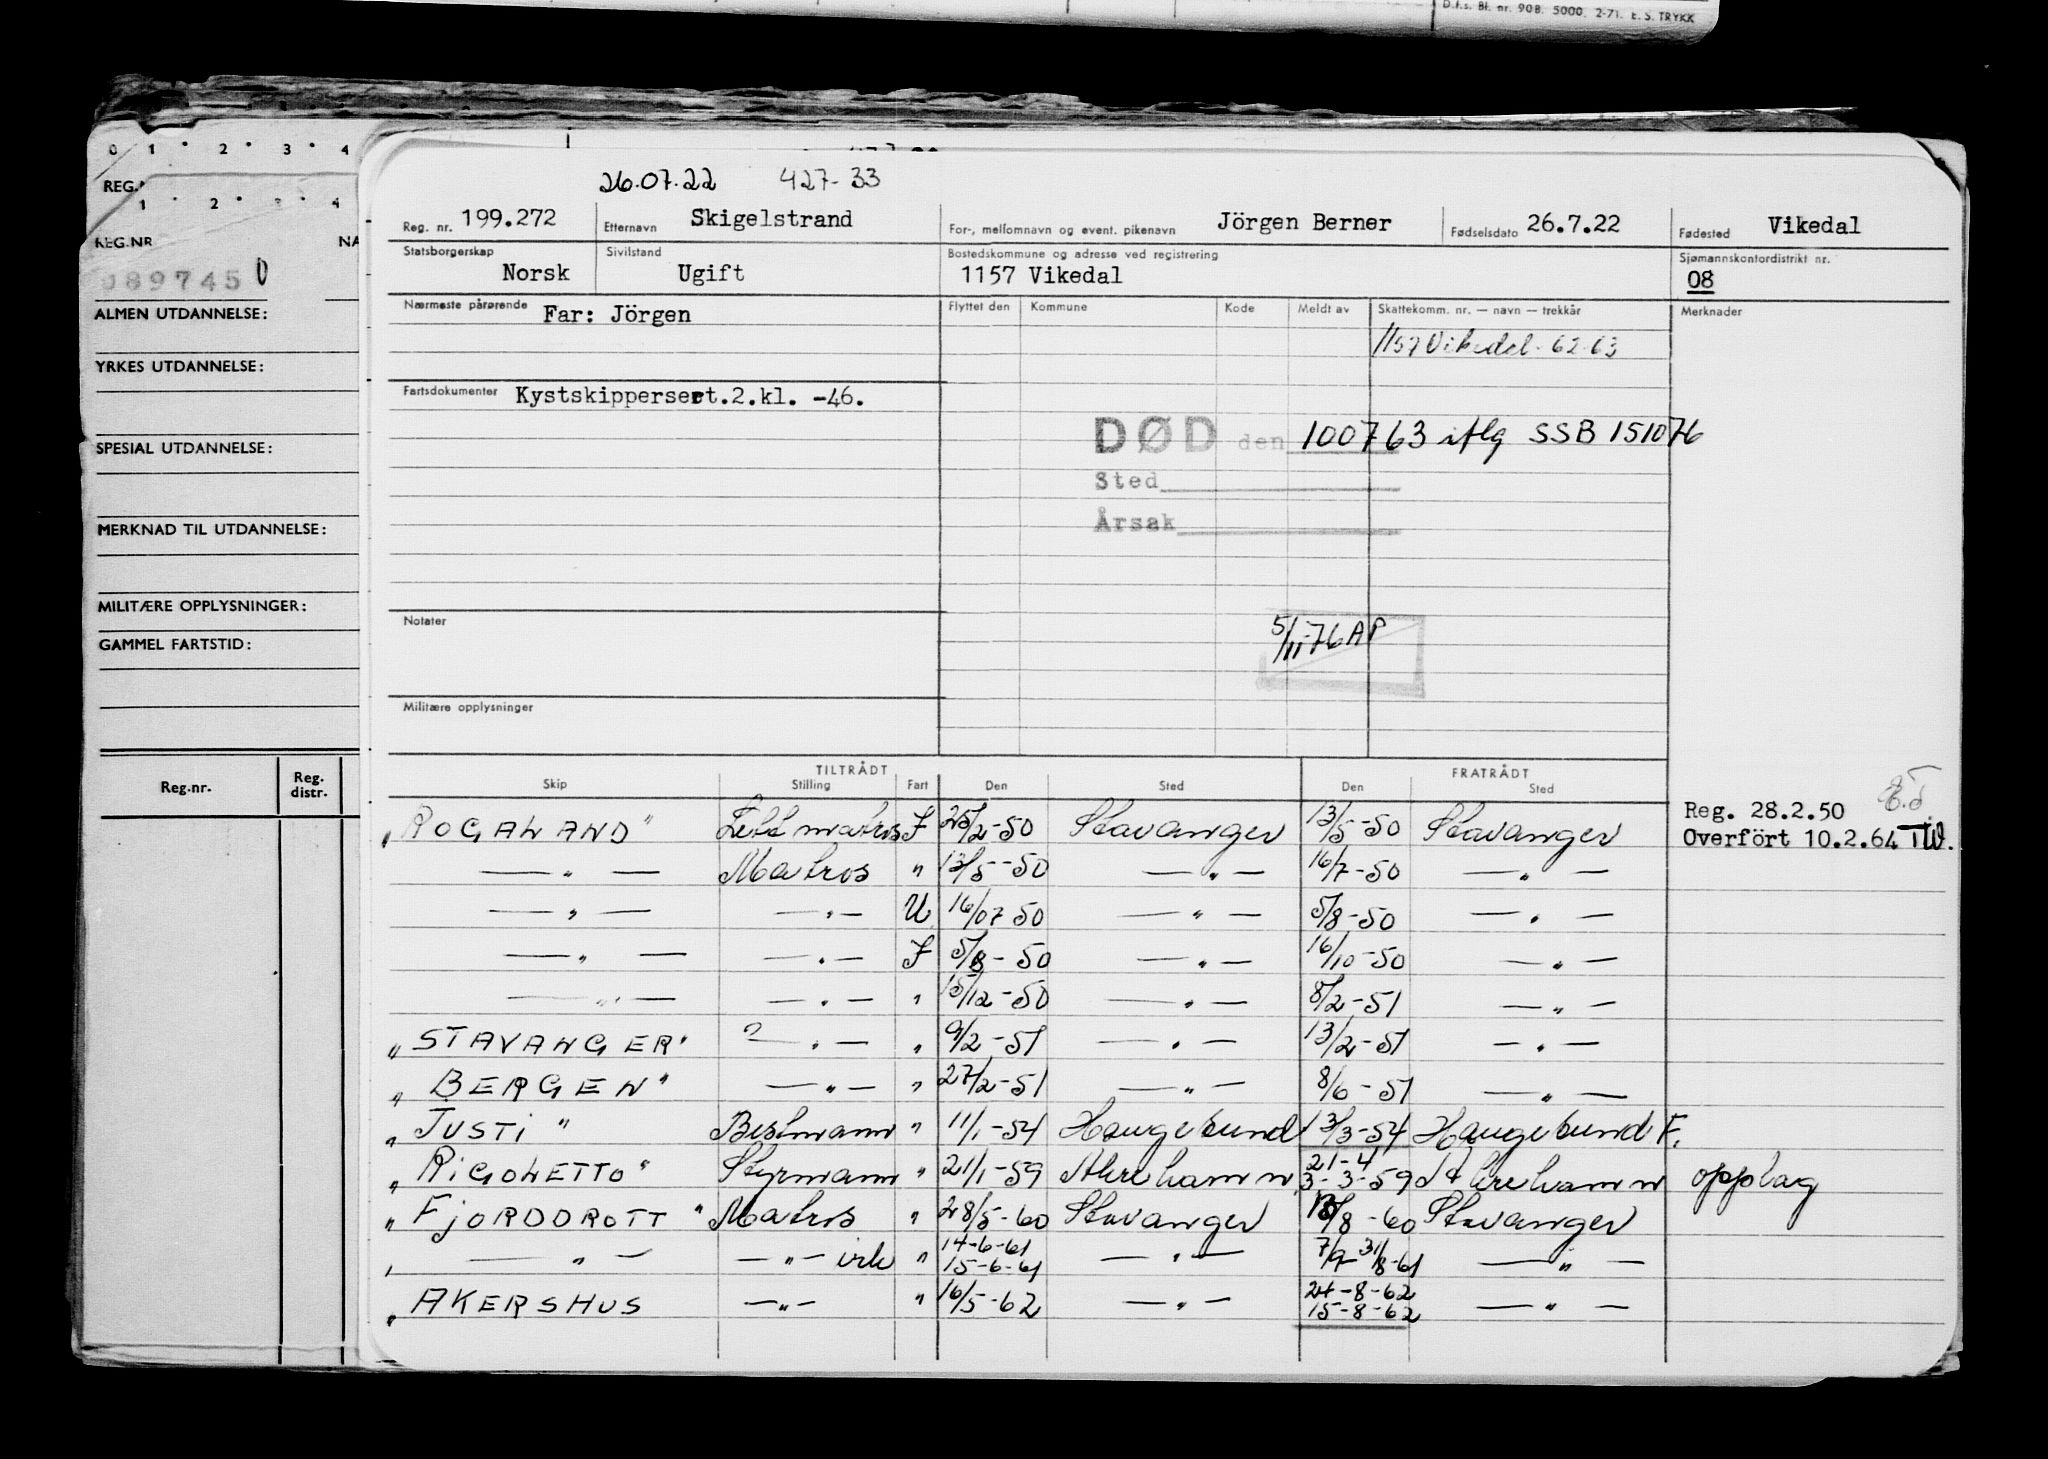 D.f.s. Bl. nr. 90B. 5000. 2-71. E. S. TRYKK
0 1 2 3 4
REG.
1 2 3 4
REG.NR NA
0897450
ALMEN UTDANNELSE:
YRKES UTDANNELSE:
SPESIAL UTDANNELSE:
MERKNAD TIL UTDANNELSE:
MILITÆRE OPPLYSNINGER:
GAMMEL FARTSTID:
Reg.nr. Reg. distr.
26.07.22 427-33
Reg. nr. 199.272 Etternavn Skigelstrand For-, mellomnavn og event. pikenavn Jörgen Berner Fødselsdato 26.7.22 Fødested Vikedal
Statsborgerskap Norsk Sivilstand Ugift Bostedskommune og adresse ved registrering 1157 Vikedal Sjømannskontordistrikt nr. 08
Nærmeste pårørende Far: Jörgen Flyttet den Kommune Kode Meldt av Skattekomm. nr. — navn — trekkår Merknader
1157 Vikedal - 62-63
Fartsdokumenter Kystskippersert.2.kl. -46.
DØD den 100763 iflg SSB 151076
Sted
Årsak
Notater
5/11-76 AP
Militære opplysninger
TILTRÅDT FRATRÅDT
Skip Stilling Fart Den Sted Den Sted
Reg. 28.2.50
Overfört 10.2.64 TW.
"ROGALAND" Lettmatros F 25/2-50 Stavanger 13/5-50 Stavanger
— " — Matros " 13/5-50 — " — 16/7-50 — " —
— " — — " — U 16/07 50 — " — 5/8-50 — " —
— " — — " — F 5/8-50 — " — 16/10-50 — " —
— " — — " — " 15/12-50 — " — 8/2-51 — " —
"STAVANGER" ? — " — " 9/2-51 — " — 13/2-51 — " —
"BERGEN" — " — " 27/2-51 — " — 8/6-51 — " —
"JUSTI" Bestmann " 11/1-54 Haugesund 13/3-54 Haugesund F.
"RIGOLETTO" Styrmann " 21/1-59 Åkrehamn 21-4 3-3-59 Åkrehamn opplag
"FJORDDROTT" Matros " 28/5-60 Stavanger /8-60 Stavanger
— " — — " — " 14-6-61 15-6-61 — " — 7/9 31/8-61 — " —
"AKERSHUS — " — " 16/5-62 — " — 24-8-62 15-8-62 — " —